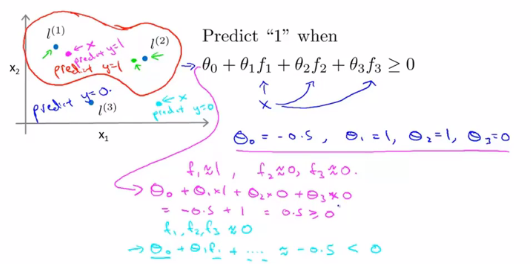 l^{(1)}
x
predict y=1
l^{(2)}
predict y=1
x_2
predict y=0.
l^{(3)}
x
predict y=0
x_1
Predict “1” when
θ_0 + θ_1 f_1 + θ_2 f_2 + θ_3 f_3 ≥ 0
x
θ_0 = -0.5, θ_1 = 1, θ_2 = 1, θ_3 = 0
f_1 ≈ 1, f_2 ≈ 0, f_3 ≈ 0.
θ_0 + θ_1 × 1 + θ_2 × 0 + θ_3 × 0
= -0.5 + 1 = 0.5 ≥ 0
f_1, f_2, f_3 ≈ 0
→ θ_0 + θ_1 f_1 + .... ≈ -0.5 < 0